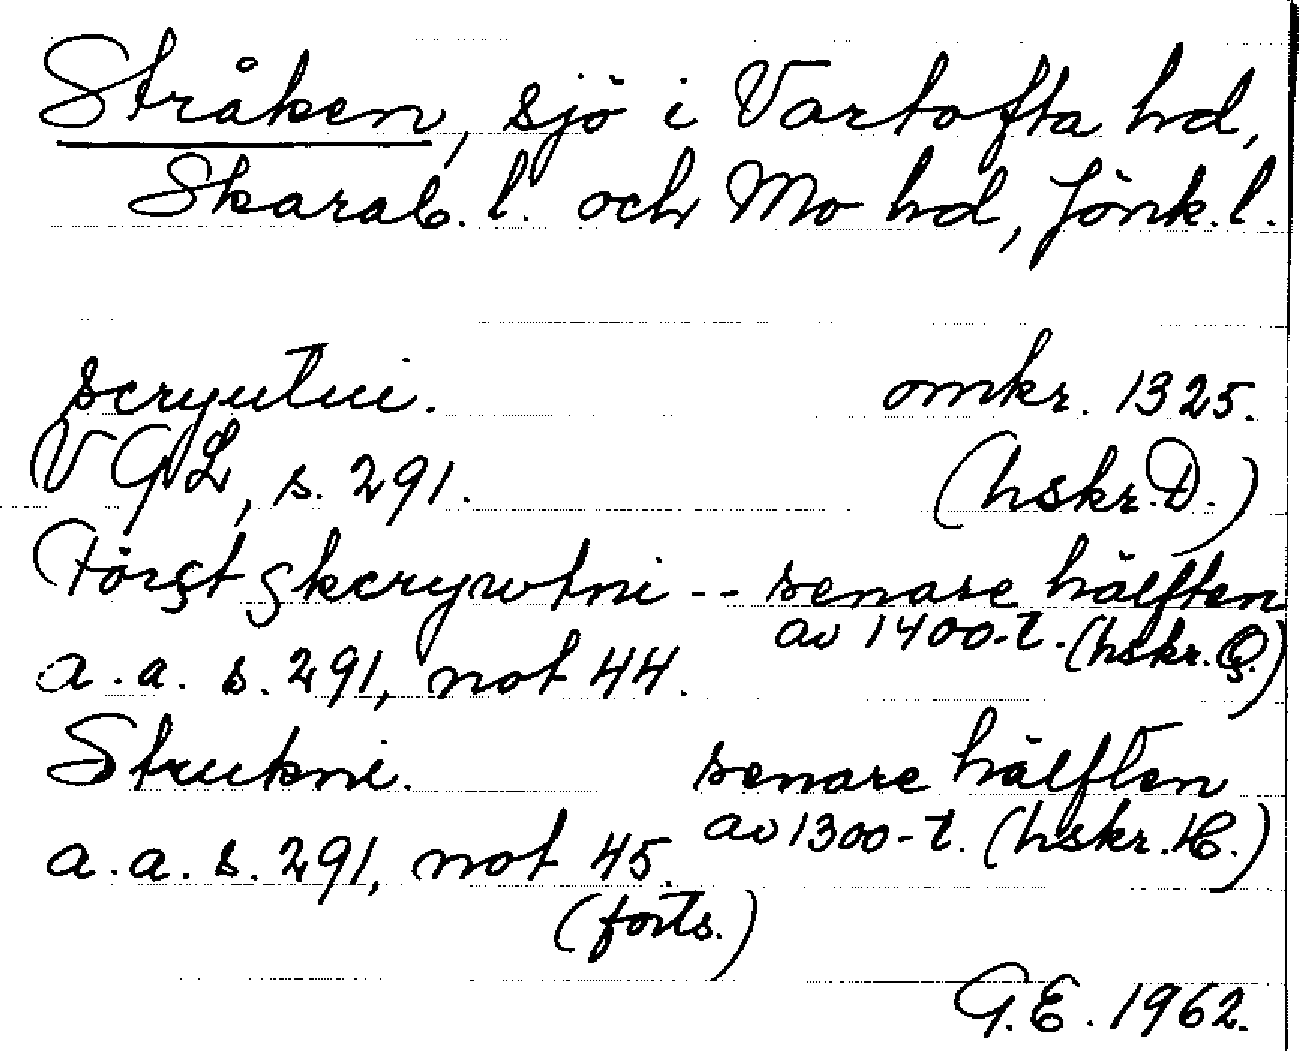 Stråken, sjö i Vartofta hd,
Skarab. l. och Mo hd, Jönk. l.
scryutni. omkr. 1325.
VGL, s. 291. (hskr. D.)
Först skcrywtni -- senare hälften
av 1400-t. (hskr. Q.)
a. a. s. 291, not 44.
Strukni. senare hälften
av 1300-t. (hskr. H.)
a. a. s. 291, not 45.
(forts.)
G. E. 1962.